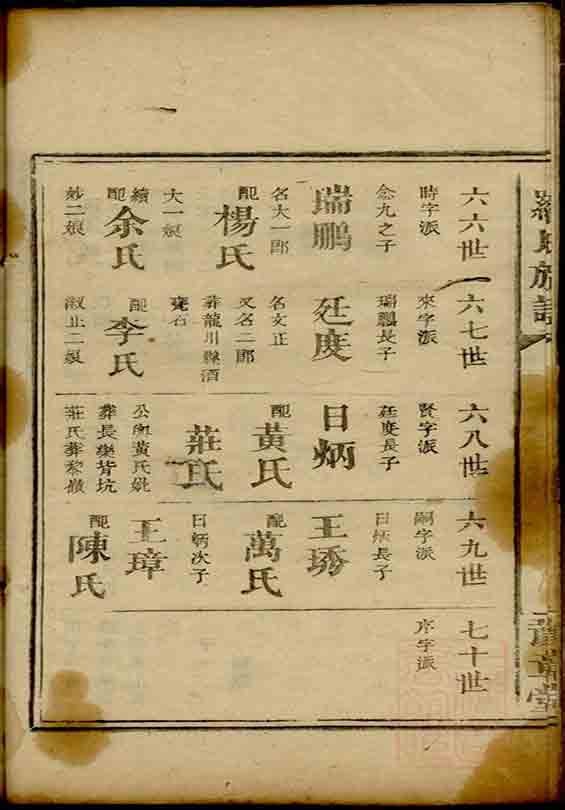 羅氏族譜
六六世
時字派
念九之子
瑞鵬
名大一郎
配
楊氏
大一娘
續
配
余氏
妙二娘
六七世
來字派
瑞鵬長子
廷度
名文正
又名二郎
葬龍川縣酒
甕石
配
李氏
淑止二娘
六八世
賢字派
廷度長子
日炳
配
黃氏
莊氏
公與黃氏妣
葬長樂背坑
莊氏葬黎嶺
六九世
嗣字派
日炳長子
王琇
配
萬氏
日炳次子
王璋
配
陳氏
七十世
序字派